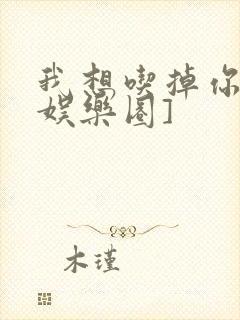 我想喫掉你
娛樂圈]
木瑾